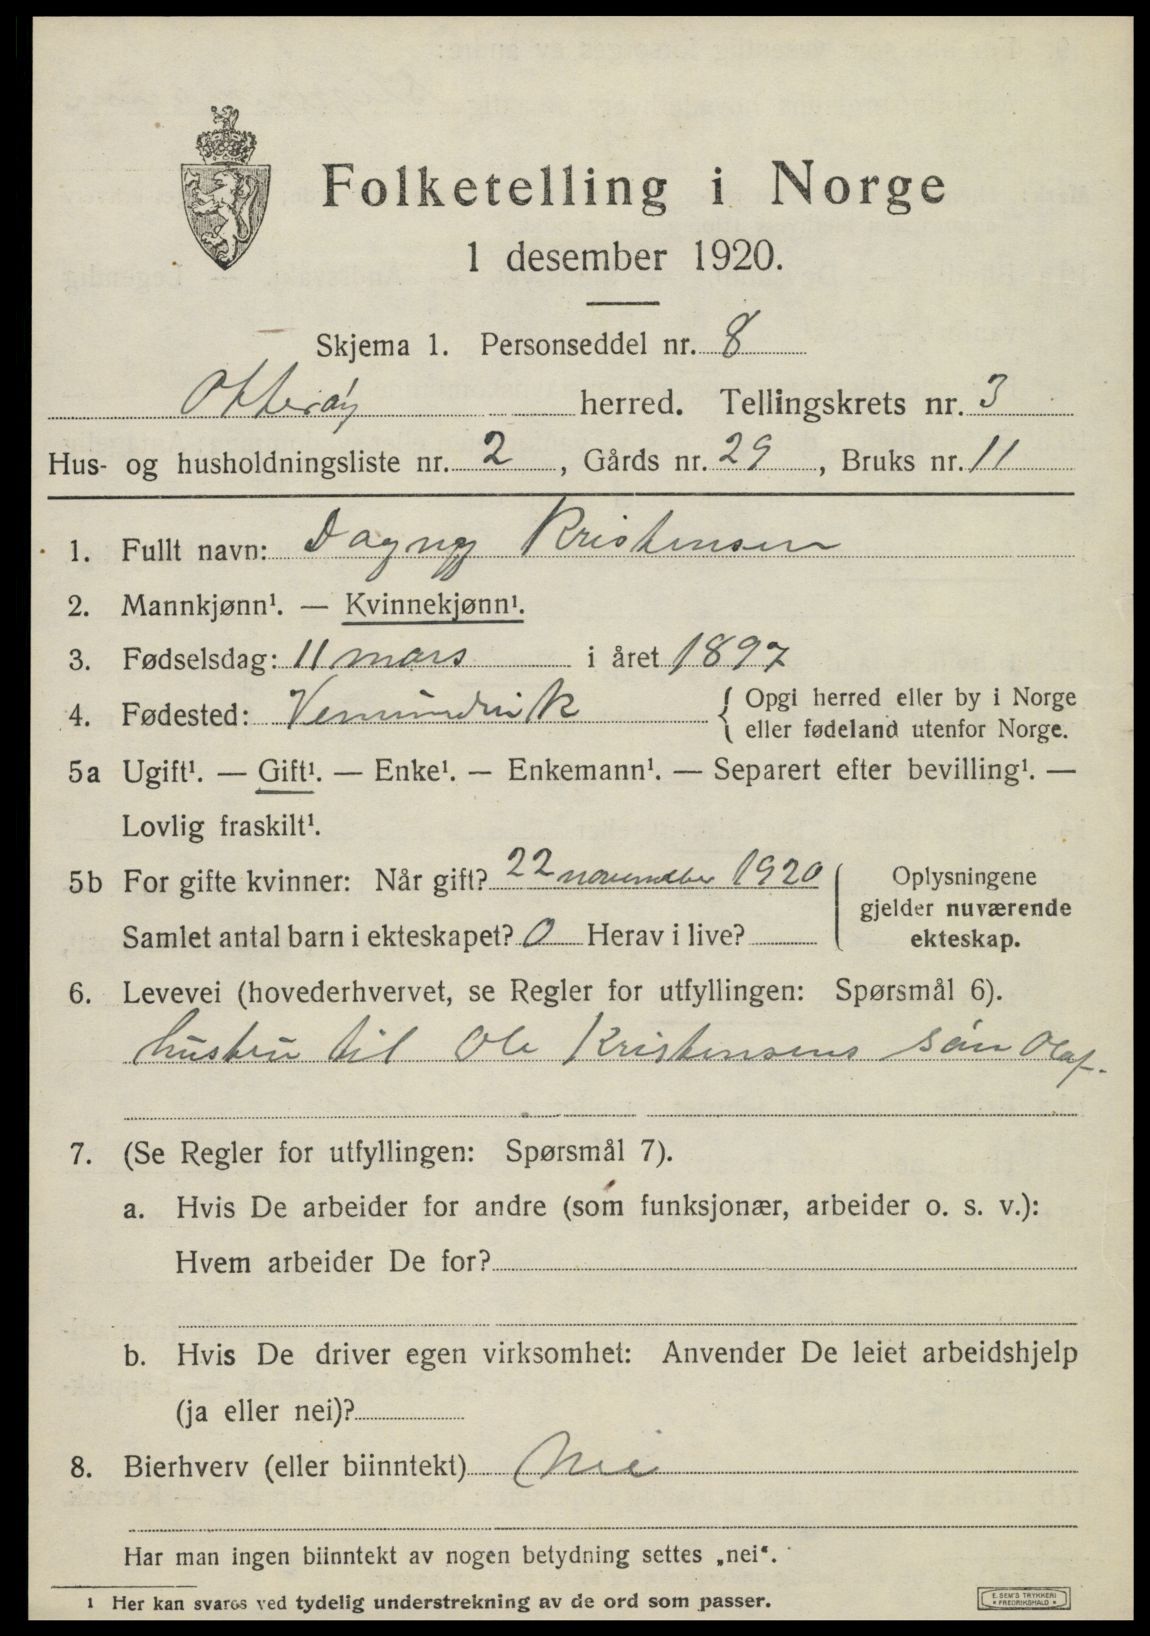 Folketelling i Norge
1 desember 1920.
Skjema 1. Personseddel nr. 8
Otterøy herred. Tellingskrets nr. 3
Hus- og husholdningsliste nr. 2, Gårds nr. 29, Bruks nr. 11
1. Fullt navn: Dagny Kristensen
2. Mannkjønn¹. — Kvinnekjønn¹.
3. Fødselsdag: 11 mars i året 1897
4. Fødested: Vemundvik { Opgi herred eller by i Norge
eller fødeland utenfor Norge.
5a Ugift¹. — Gift¹. — Enke¹. — Enkemann¹. — Separert efter bevilling¹. —
Lovlig fraskilt¹.
5b For gifte kvinner: Når gift? 22 november 1920
Samlet antal barn i ekteskapet? 0 Herav i live?
Oplysningene
gjelder nuværende
ekteskap.
6. Levevei (hovederhvervet, se Regler for utfyllingen: Spørsmål 6).
hustru til Ole Kristensens søn Olaf.
7. (Se Regler for utfyllingen: Spørsmål 7).
a. Hvis De arbeider for andre (som funksjonær, arbeider o. s. v.):
Hvem arbeider De for?
b. Hvis De driver egen virksomhet: Anvender De leiet arbeidshjelp
(ja eller nei)?
8. Bierhverv (eller biinntekt) Nei
Har man ingen biinntekt av nogen betydning settes „nei“.
1 Her kan svares ved tydelig understrekning av de ord som passer.
E. SEM'S TRYKKERI
* FREDRIKSHALD *